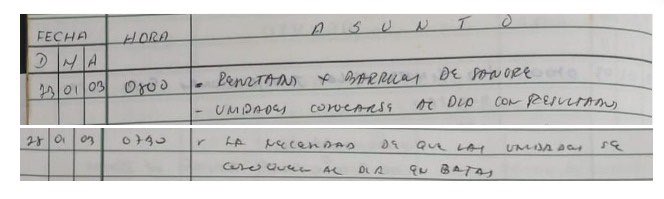 FECHA HORA ASUNTO
D M A
23 01 03 0800 - RESULTADOS X BARRERAS DE SANGRE
- UNIDADES COLOCARSE AL DIA CON RESULTADOS
28 01 03 0730 LA NECESIDAD DE QUE LAS UNIDADES SE
COLOQUEN AL DIA EN BATAS